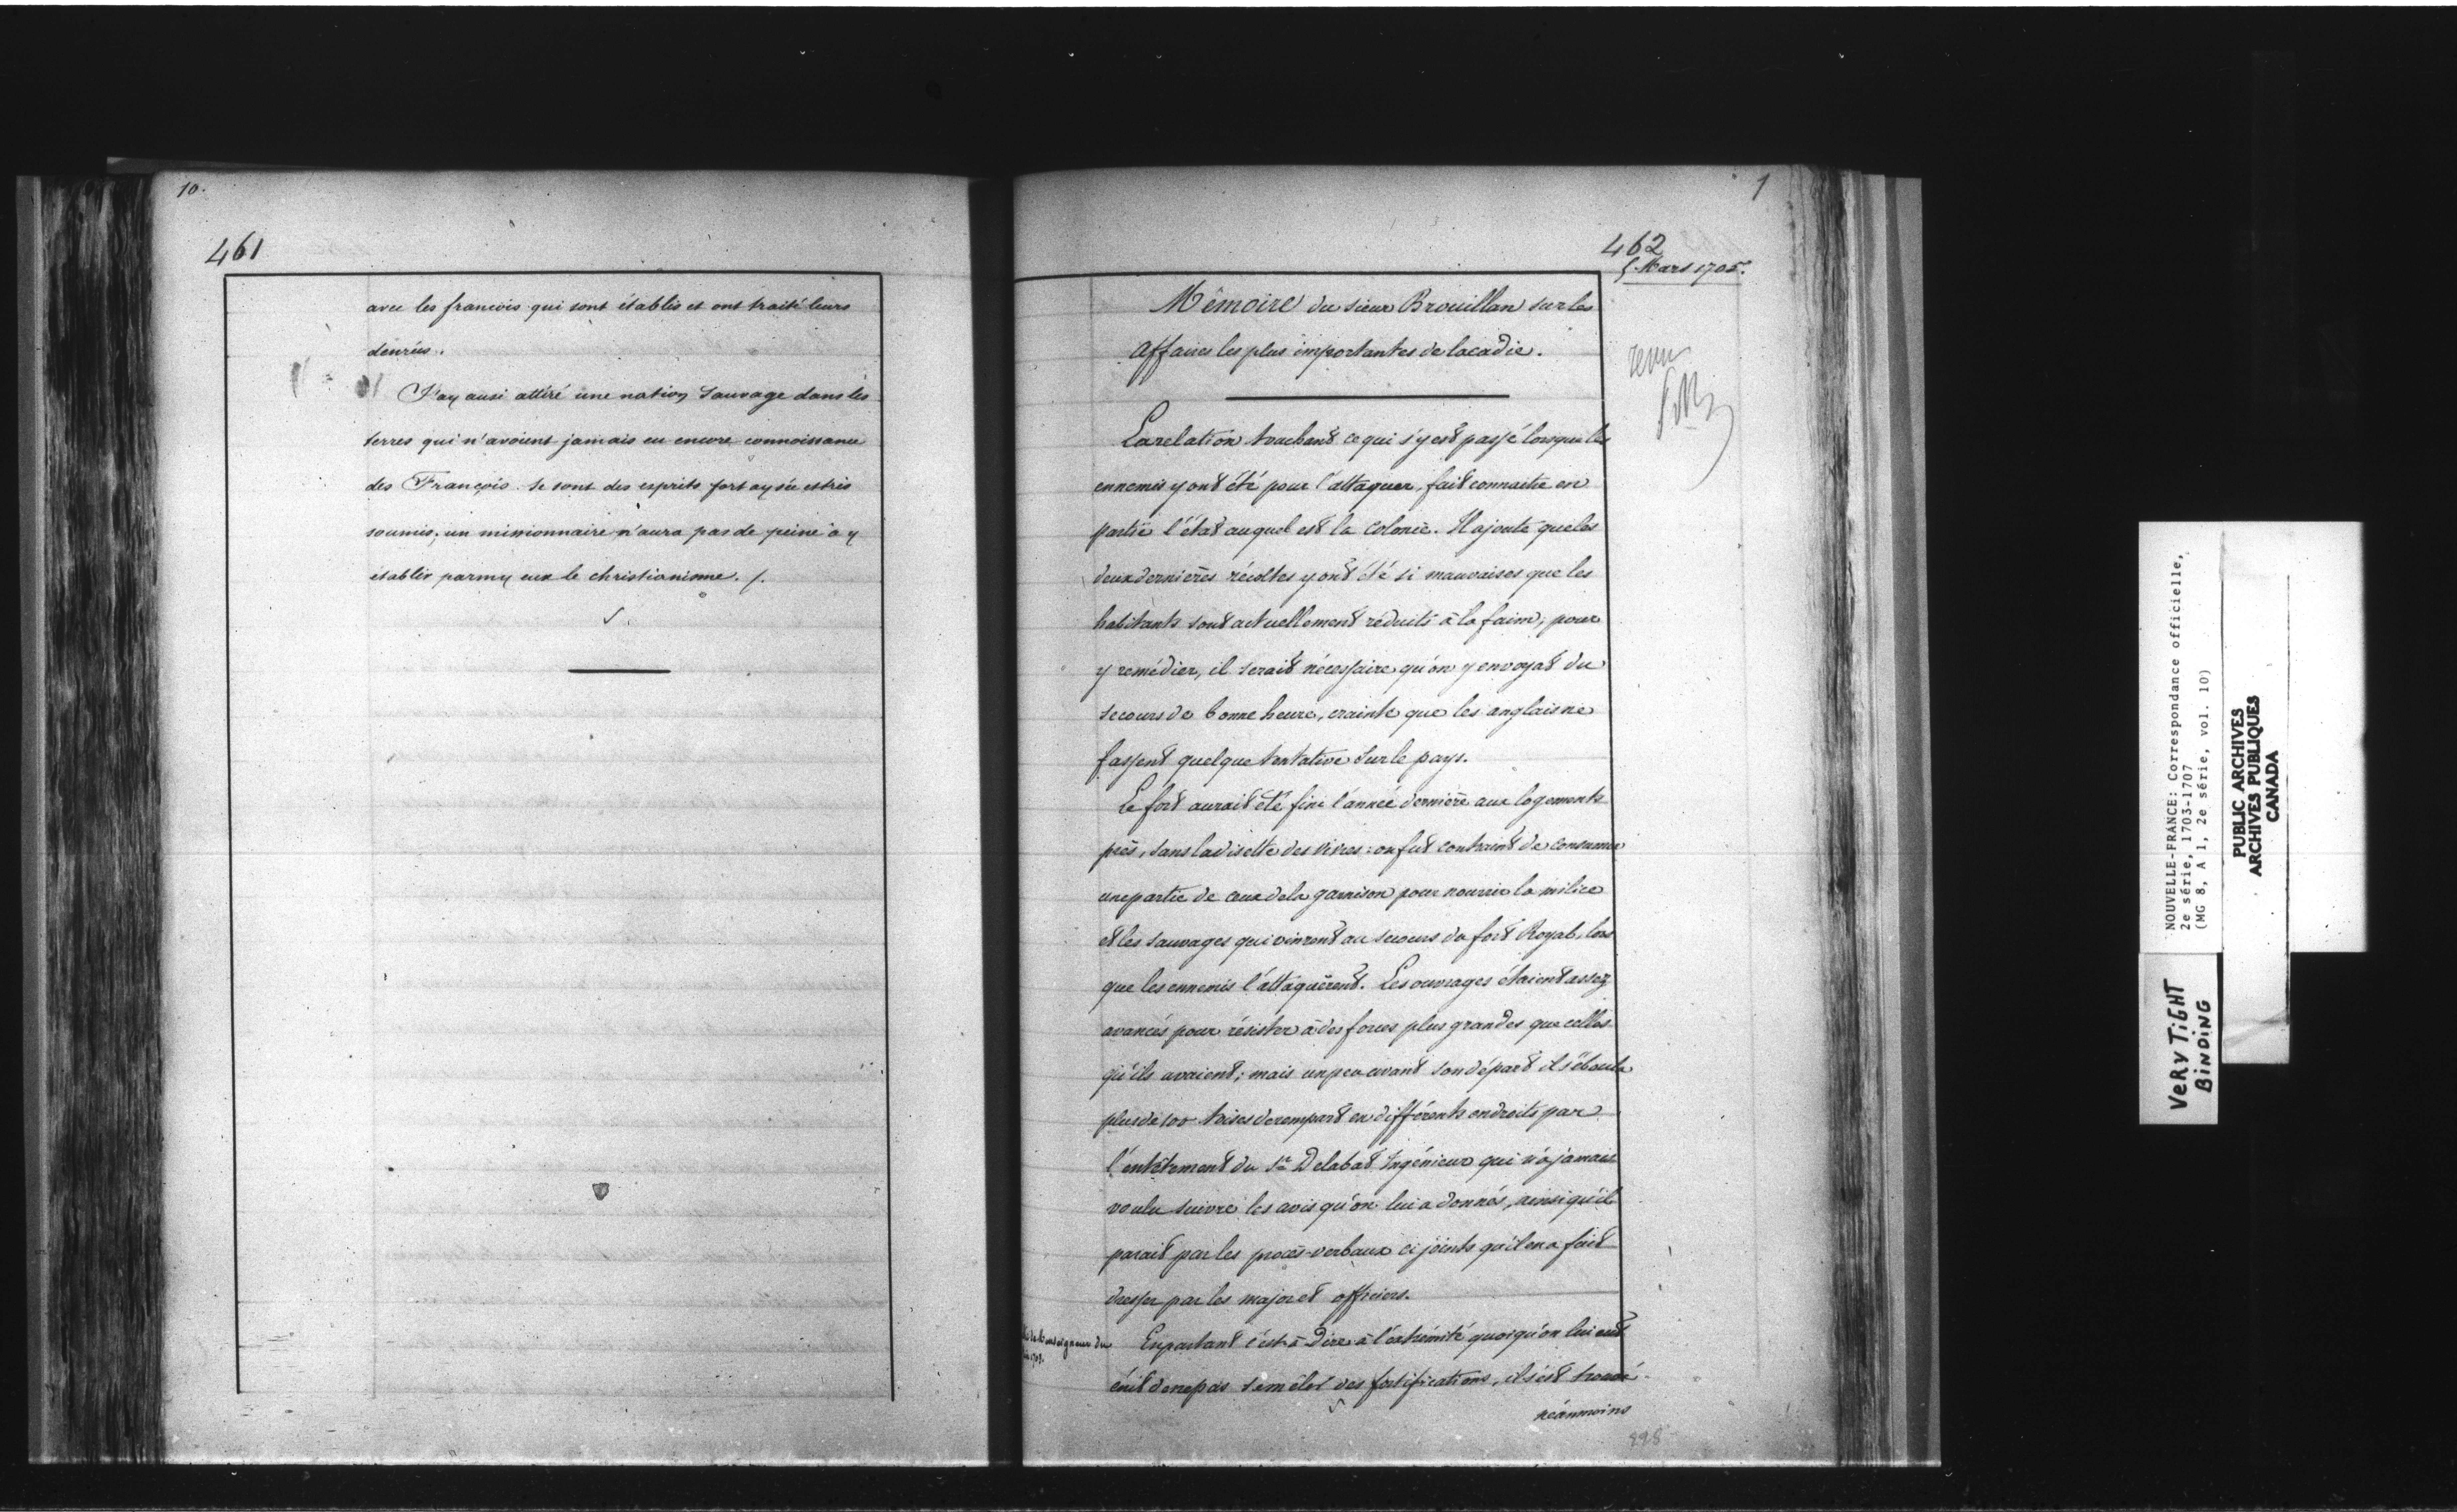 10.
461
avec les francois qui sont établis et ont traité leurs
denrées.
J'ay ausi attiré une nation Sauvage dans les
terres qui n'avoient jamais eu encore connoissance
des François. Se sont des esprits fort aysée et tres
soumis; un missionnaire n'aura pas de peine à y
établir parmy eux le christianisme. /.
1
462
5 Mars 1705.
Mémoire du sieur Brouillan sur les
affaires les plus importantes de lacadie.
La relation touchant ce qui s'y est passé lorsque les
ennemis y ont été pour l'attaquer, fait connaitre en
partie l'état auquel est la colonie. Il ajoute que les
deux dernières récoltes y ont été si mauvaises que les
habitants sont actuellement réduits à la faim; pour
y remédier, il serait nécessaire qu'on y envoyat du
secours de bonne heure, crainte que les anglais ne
fassent quelque tentative sur le pays.
Le fort aurait été fini l'année dernière aux logements
près, sans la disette des vivres: on fut contraint de consumer
une partie de ceux de la garnison pour nourrir la milice
et les sauvages qui vinrent au secours du fort Royal, lors
que les ennemis l'attaquèrent. Les ouvrages étaient assez
avancés pour résister à des forces plus grandes que celles
qu'ils avaient; mais un peu avant son départ il s'éboula
plus de 100 toises de rempart en différents endroits par
l'entêtement du Sr. Delabat Ingénieur qui n'a jamais
voulu suivre les avis qu'on lui a donnés, ainsi qu'il
parait par les procès-verbaux ci joints qu'il en a fait
dresser par les major et officiers.
Monseigneur du
En partant c'est à dire à l'extrémité quoiqu'on lui eut
écrit de ne pas se mêler des fortifications, il s'est trouvé
néanmoins
898
NOUVELLE-FRANCE: Correspondance officielle,
2e série, 1703-1707
(MG 8, A 1, 2e série, vol. 10)
PUBLIC ARCHIVES
ARCHIVES PUBLIQUES
CANADA
VERY TIGHT
BINDING